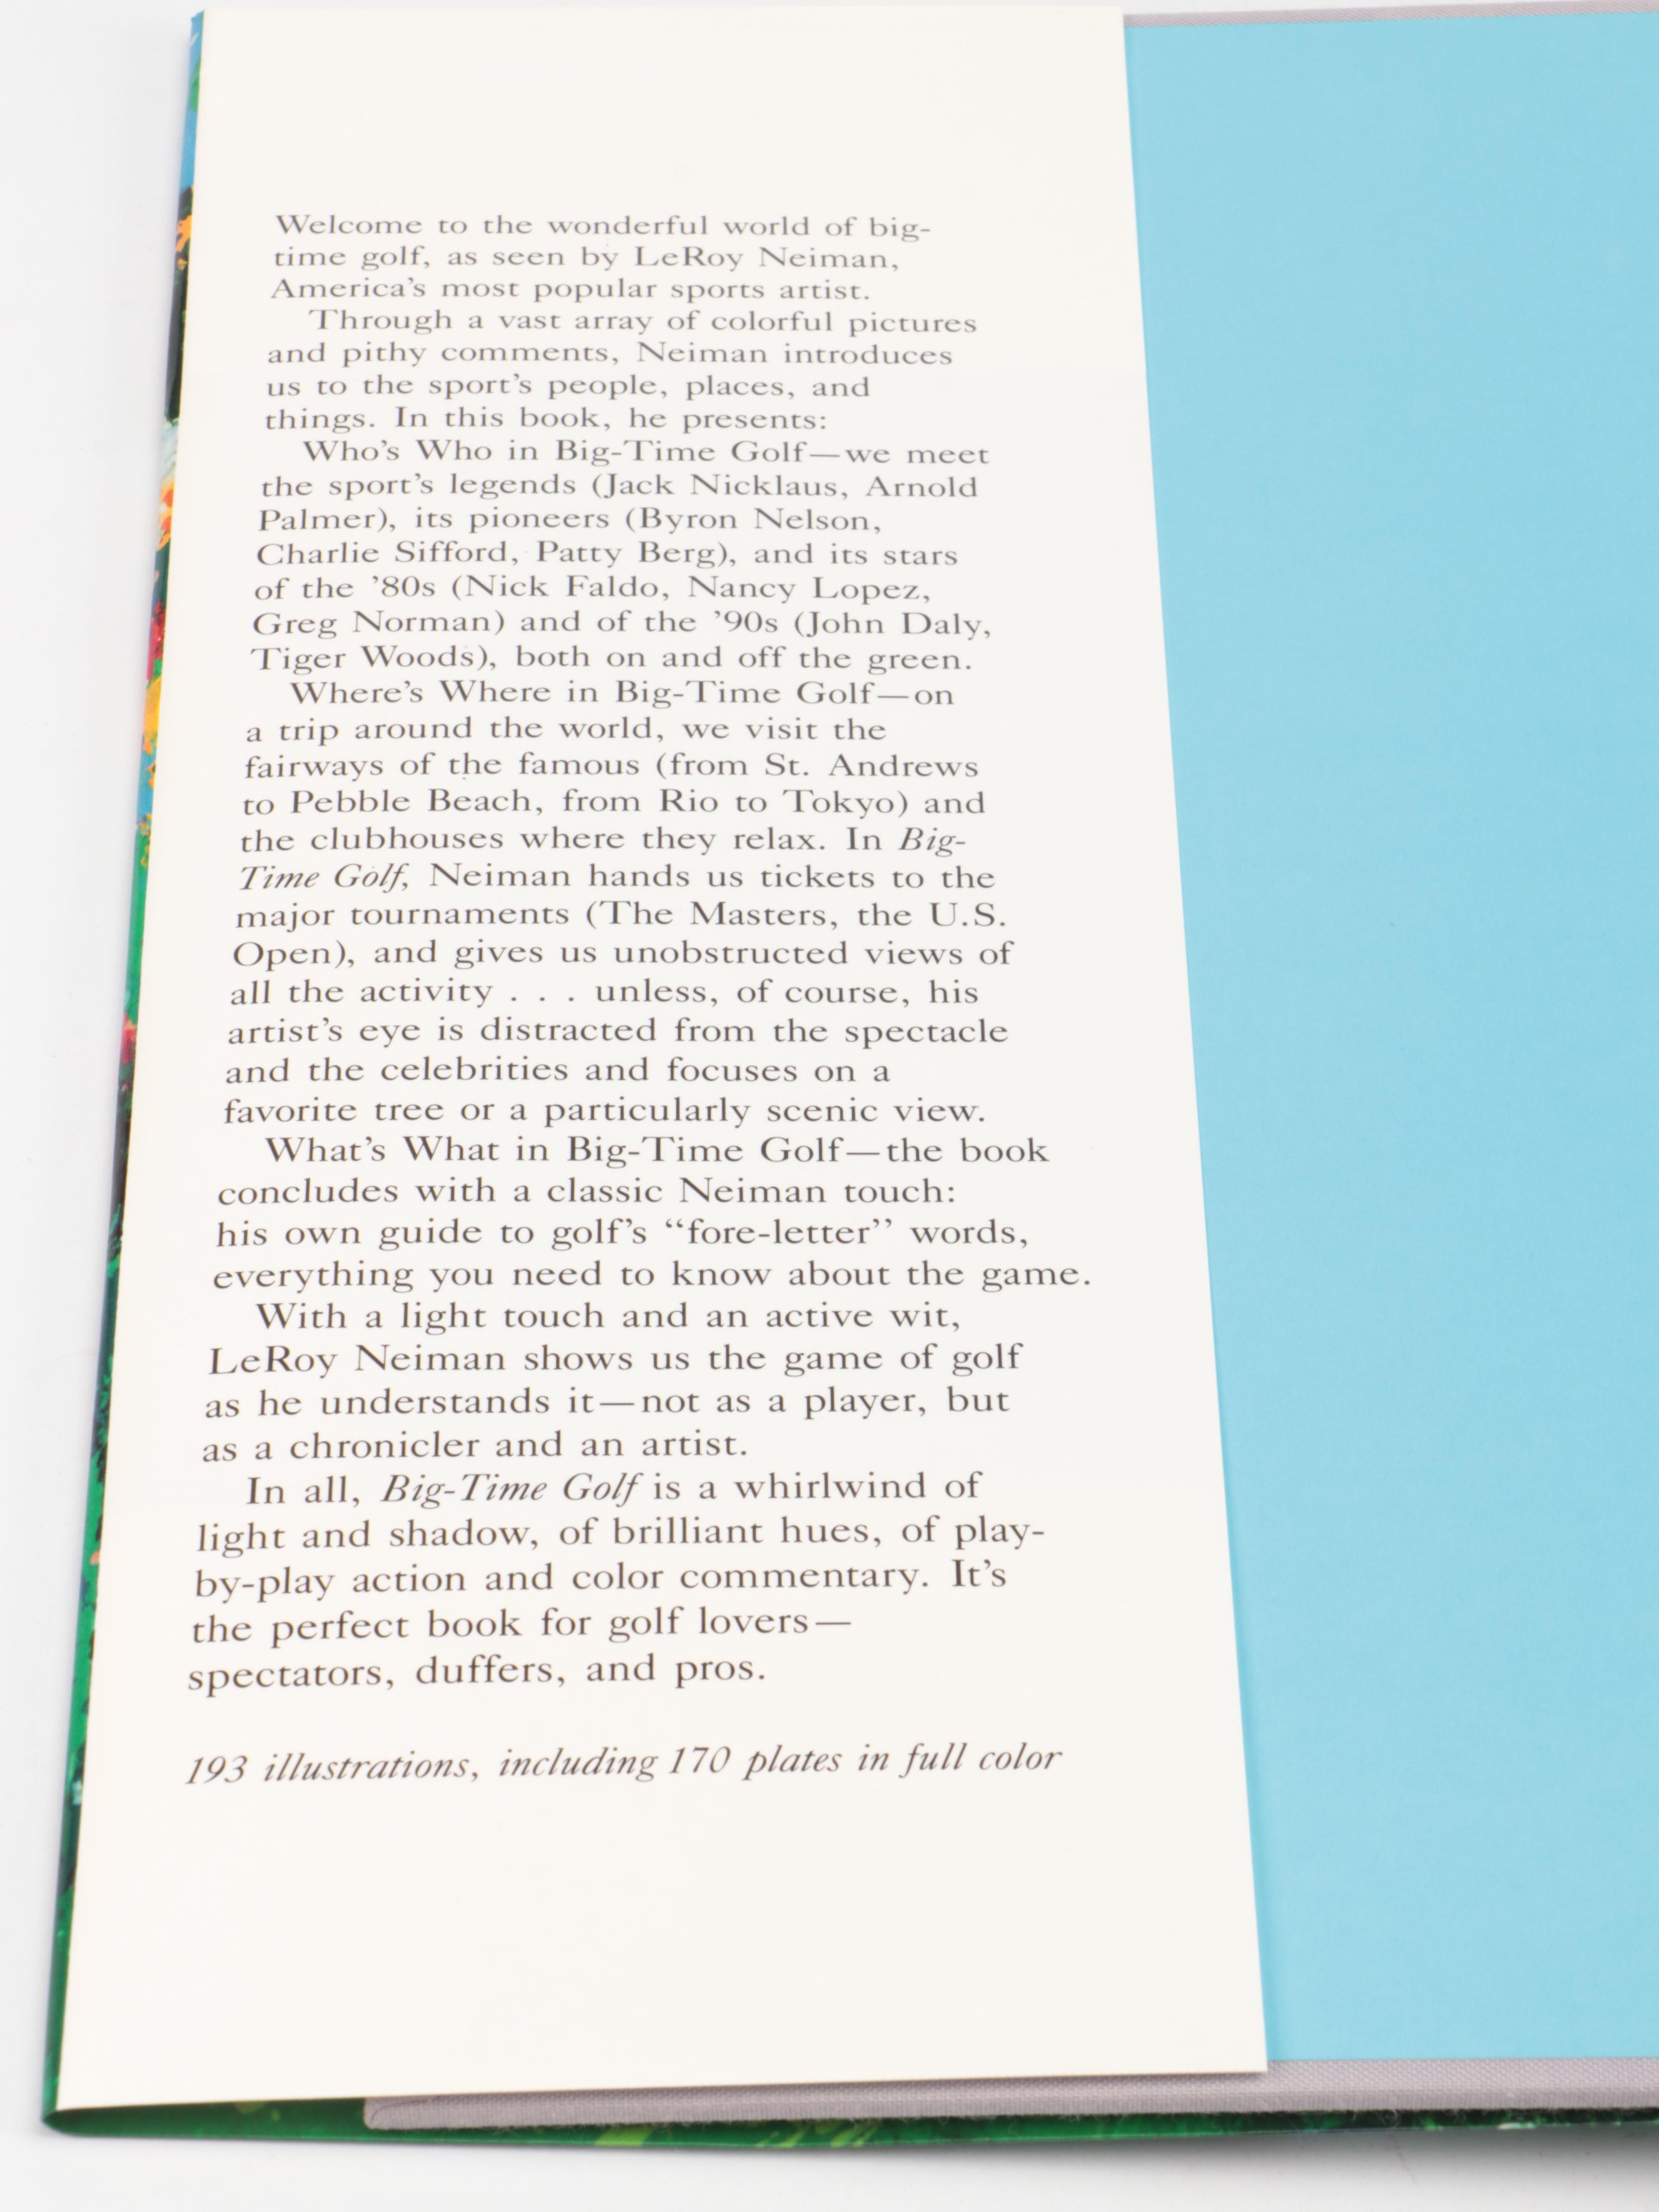 Welcome to the wonderful world of big-
time golf, as seen by LeRoy Neiman,
America's most popular sports artist.
Through a vast array of colorful pictures
and pithy comments, Neiman introduces
us to the sport's people, places, and
things. In this book, he presents:
Who's Who in Big-Time Golf—we meet
the sport's legends (Jack Nicklaus, Arnold
Palmer), its pioneers (Byron Nelson,
Charlie Sifford, Patty Berg), and its stars
of the '80s (Nick Faldo, Nancy Lopez,
Greg Norman) and of the '90s (John Daly,
Tiger Woods), both on and off the green.
Where's Where in Big-Time Golf—on
a trip around the world, we visit the
fairways of the famous (from St. Andrews
to Pebble Beach, from Rio to Tokyo) and
the clubhouses where they relax. In Big-
Time Golf, Neiman hands us tickets to the
major tournaments (The Masters, the U.S.
Open), and gives us unobstructed views of
all the activity . . . unless, of course, his
artist's eye is distracted from the spectacle
and the celebrities and focuses on a
favorite tree or a particularly scenic view.
What's What in Big-Time Golf—the book
concludes with a classic Neiman touch:
his own guide to golf's “fore-letter” words,
everything you need to know about the game.
With a light touch and an active wit,
LeRoy Neiman shows us the game of golf
as he understands it—not as a player, but
as a chronicler and an artist.
In all, Big-Time Golf is a whirlwind of
light and shadow, of brilliant hues, of play-
by-play action and color commentary. It's
the perfect book for golf lovers—
spectators, duffers, and pros.
193 illustrations, including 170 plates in full color